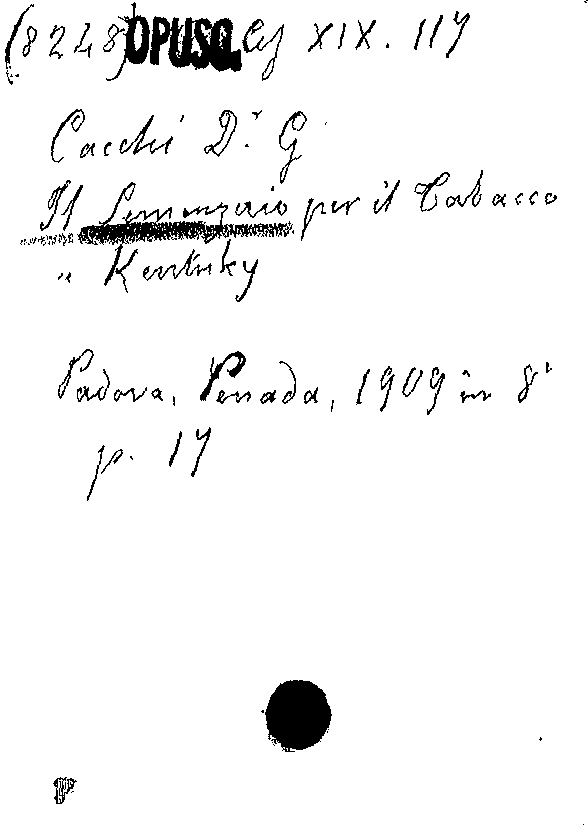 (8248) OPUSC. XIX. 117
Cacchi D.r G.
Il Semenzaio per il Tabacco
" Kentuky
Padova, Penada, 1909 in 8°
p. 17
P